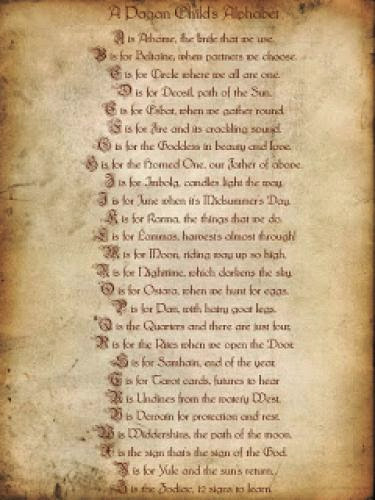 A Pagan Child's Alphabet
A is Athame, the knife that we use.
B is for Beltaine, when partners we choose.
C is for Circle where we all are one.
D is for Deosil, path of the Sun.
E is for Esbat, when we gather round.
F is for Fire and its crackling sound.
G is for the Goddess in beauty and love.
H is for the Horned One, our Father of above.
I is for Imbolg, candles light the way.
J is for June when its Midsummer's Day.
K is for Karma, the things that we do.
L is for Lammas, harvests almost through!
M is for Moon, riding way up so high.
N is for Nighttime, which darkens the sky.
O is for Ostara, when we hunt for eggs.
P is for Pan, with hairy goat legs.
Q is the Quarters and there are just four.
R is for the Rites when we open the Door.
S is for Samhain, end of the year.
T is for Tarot cards, futures to hear
U is Undines from the watery West.
V is Vervain for protection and rest.
W is Widdershins, the path of the moon.
X is the sign that's the sign of the God.
Y is for Yule and the sun's return,
Z is the Zodiac, 12 signs to learn.